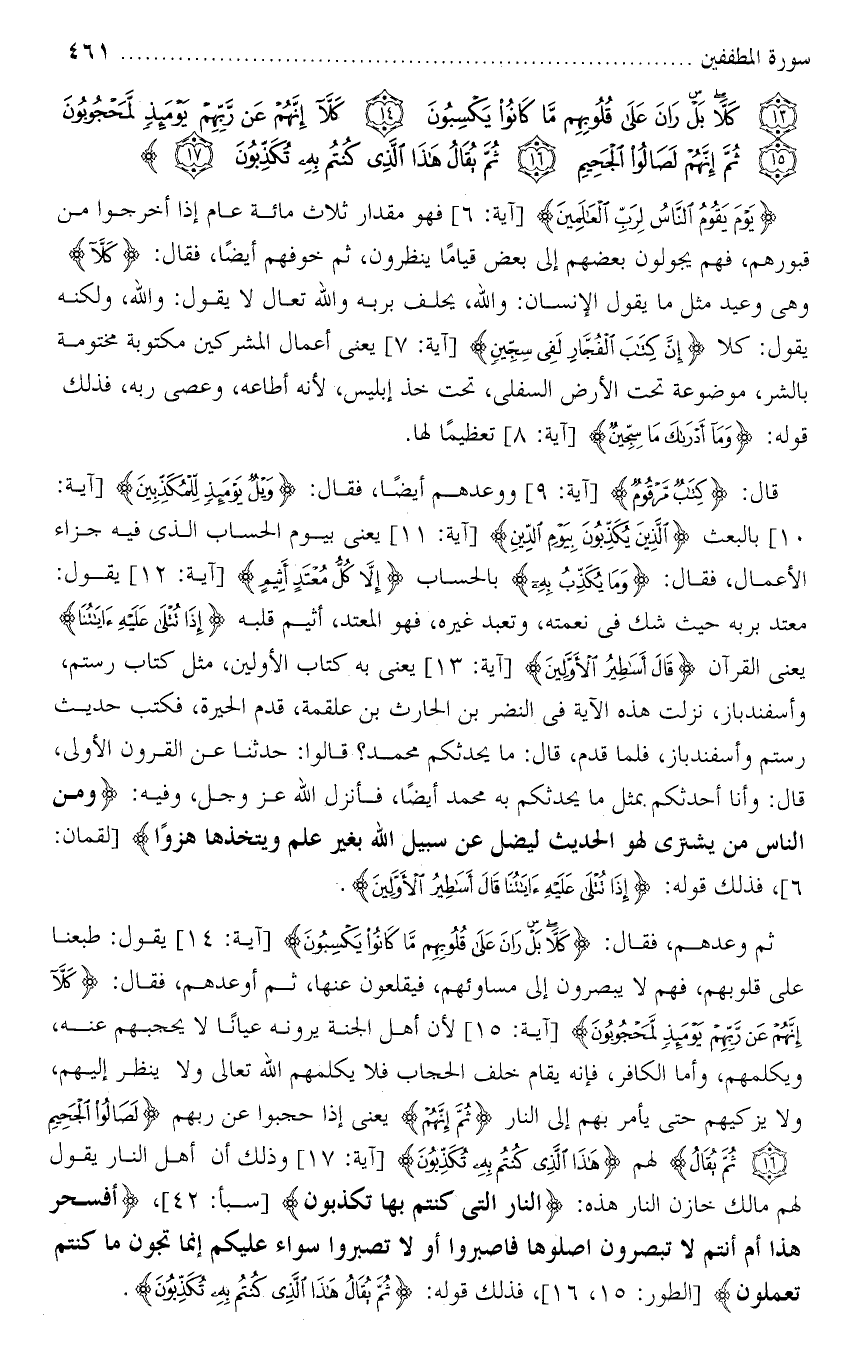 سورة المطففين ........................................................................ ٤٦١
(١٣) كَلَّا ۖ بَلْ ۜ رَانَ عَلَىٰ قُلُوبِهِم مَّا كَانُوا۟ يَكْسِبُونَ (١٤) كَلَّآ إِنَّهُمْ عَن رَّبِّهِمْ يَوْمَئِذٍ لَّمَحْجُوبُونَ
(١٥) ثُمَّ إِنَّهُمْ لَصَالُوا۟ ٱلْجَحِيمِ (١٦) ثُمَّ يُقَالُ هَـٰذَا ٱلَّذِى كُنتُم بِهِۦ تُكَذِّبُونَ (١٧) ﴾
﴿ يَوْمَ يَقُومُ ٱلنَّاسُ لِرَبِّ ٱلْعَـٰلَمِينَ﴾ [آية: ٦] فهو مقدار ثلاث مائة عام إذا أخرجوا من
قبورهم، فهم يجولون بعضهم إلى بعض قيامًا ينظرون، ثم خوفهم أيضًا، فقال: ﴿ كَلَّآ ﴾
وهى وعيد مثل ما يقول الإنسان: والله، يحلف بربه والله تعال لا يقول: والله، ولكنه
يقول: كلا ﴿ إِنَّ كِتَـٰبَ ٱلْفُجَّارِ لَفِى سِجِّينٍ﴾ [آية: ٧] يعنى أعمال المشركين مكتوبة مختومة
بالشر، موضوعة تحت الأرض السفلى، تحت خذ إبليس، لأنه أطاعه، وعصى ربه، فذلك
قوله: ﴿وَمَآ أَدْرَىٰكَ مَا سِجِّينٌ﴾ [آية: ٨] تعظيمًا لها.
قال: ﴿كِتَـٰبٌ مَّرْقُومٌ﴾ [آية: ٩] ووعدهم أيضًا، فقال: ﴿وَيْلٌ يَوْمَئِذٍ لِّلْمُكَذِّبِينَ﴾ [آية:
١٠] بالبعث ﴿ٱلَّذِينَ يُكَذِّبُونَ بِيَوْمِ ٱلدِّينِ﴾ [آية: ١١] يعنى بيوم الحساب الذى فيه جزاء
الأعمال، فقال: ﴿وَمَا يُكَذِّبُ بِهِۦٓ﴾ بالحساب ﴿إِلَّا كُلُّ مُعْتَدٍ أَثِيمٍ﴾ [آية: ١٢] يقول:
معتد بربه حيث شك فى نعمته، وتعبد غيره، فهو المعتد، أثيم قلبه ﴿إِذَا تُتْلَىٰ عَلَيْهِ ءَايَـٰتُنَا﴾
يعنى القرآن ﴿قَالَ أَسَـٰطِيرُ ٱلْأَوَّلِينَ﴾ [آية: ١٣] يعنى به كتاب الأولين، مثل كتاب رستم،
وأسفندباز، نزلت هذه الآية فى النضر بن الحارث بن علقمة، قدم الحيرة، فكتب حديث
رستم وأسفندباز، فلما قدم، قال: ما يحدثكم محمد؟ قالوا: حدثنا عن القرون الأولى،
قال: وأنا أحدثكم بمثل ما يحدثكم به محمد أيضًا، فأنزل الله عز وجل، وفيه: ﴿ومن
الناس من يشترى لهو الحديث ليضل عن سبيل الله بغير علم ويتخذها هزوًا﴾ [لقمان:
٦]، فذلك قوله: ﴿ إِذَا تُتْلَىٰ عَلَيْهِ ءَايَـٰتُنَا قَالَ أَسَـٰطِيرُ ٱلْأَوَّلِينَ﴾ .
ثم وعدهم، فقال: ﴿كَلَّا ۖ بَلْ ۜ رَانَ عَلَىٰ قُلُوبِهِم مَّا كَانُوا۟ يَكْسِبُونَ﴾ [آية: ١٤] يقول: طبعنا
على قلوبهم، فهم لا يبصرون إلى مساوئهم، فيقلعون عنها، ثم أوعدهم، فقال: ﴿ كَلَّآ
إِنَّهُمْ عَن رَّبِّهِمْ يَوْمَئِذٍ لَّمَحْجُوبُونَ﴾ [آية: ١٥] لأن أهل الجنة يرونه عيانًا لا يحجبهم عنه،
ويكلمهم، وأما الكافر، فإنه يقام خلف الحجاب فلا يكلمهم الله تعالى ولا ينظر إليهم،
ولا يزكيهم حتى يأمر بهم إلى النار ﴿ثُمَّ إِنَّهُمْ﴾ يعنى إذا حجبوا عن ربهم ﴿لَصَالُوا۟ ٱلْجَحِيمِ
(١٦) ثُمَّ يُقَالُ﴾ لهم ﴿هَـٰذَا ٱلَّذِى كُنتُم بِهِۦ تُكَذِّبُونَ﴾ [آية: ١٧] وذلك أن أهل النار يقول
لهم مالك خازن النار هذه: ﴿النار التى كنتم بها تكذبون﴾ [سبأ: ٤٢]، ﴿أفسحر
هذا أم أنتم لا تبصرون اصلوها فاصبروا أو لا تصبروا سواء عليكم إنما تجون ما كنتم
تعملون﴾ [الطور: ١٥، ١٦]، فذلك قوله: ﴿ثُمَّ يُقَالُ هَـٰذَا ٱلَّذِى كُنتُم بِهِۦ تُكَذِّبُونَ﴾ .